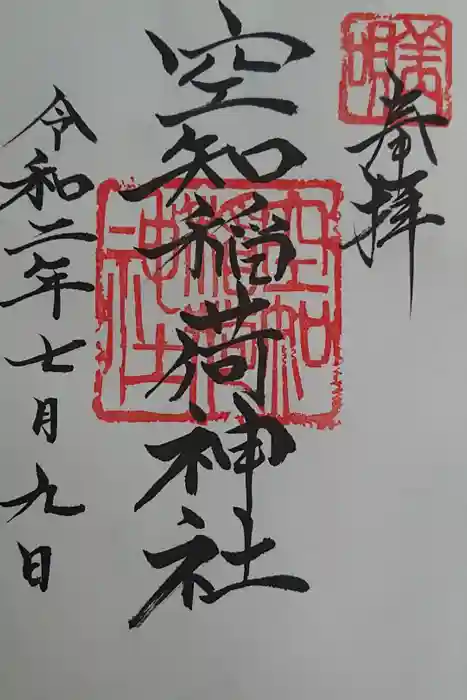 奉拝
美唄
空知稲荷神社
空知稲荷神社
令和二年七月九日